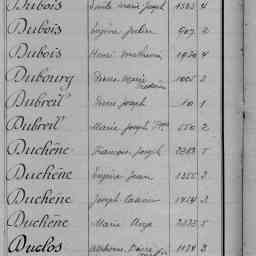 Dubois Marie Joseph 1583 4
Dubois Eugène Julien 907 2
Dubois Henri Mathurin 1920 4
Dubourg Pierre Marie 1005 2
Dubreil Pierre Joseph 10 1
Dubreil Marie Joseph 550 2
Duchêne François Joseph 2383 5
Duchêne Eugène Jean 1250 3
Duchêne Joseph 1414 3
Duchêne Marie Ange 2333 5
Duclos Alphonse Pierre 1134 3